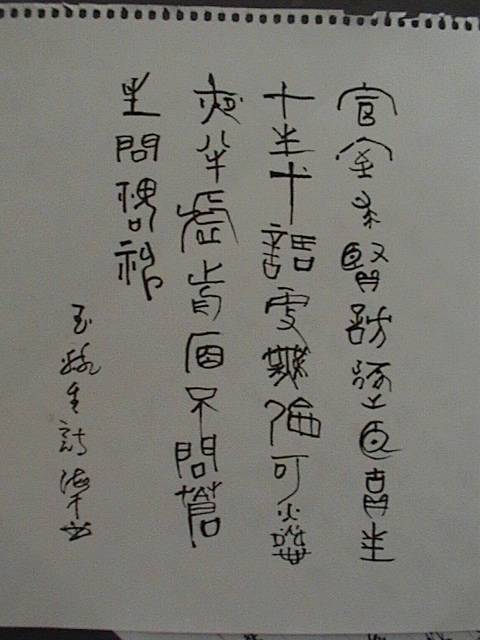 宣室求賢訪逐臣賈生
才調更無倫可憐
夜半虛前席不問蒼
生問鬼神
玉谿生詩